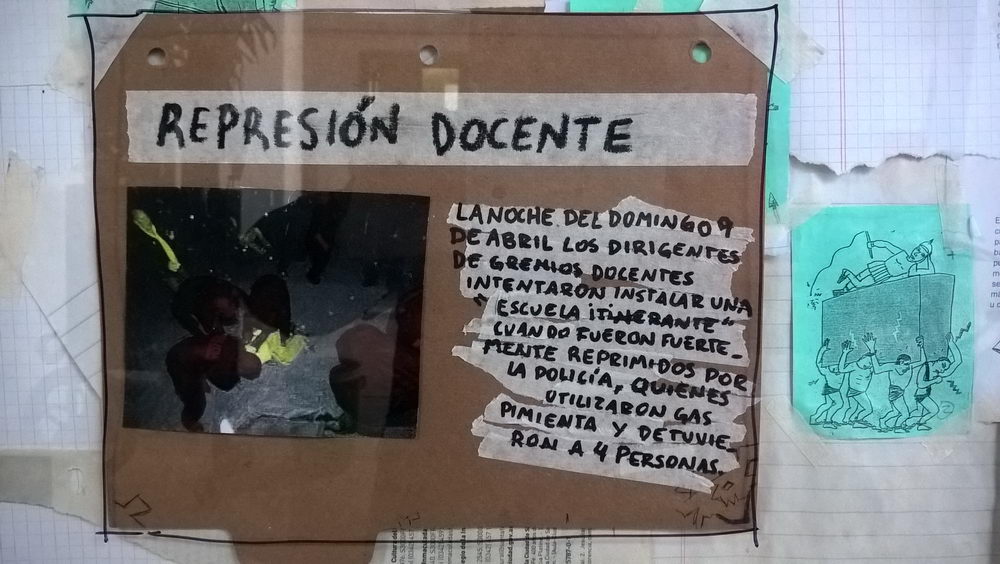 REPRESIÓN DOCENTE
LA NOCHE DEL DOMINGO 9
DE ABRIL LOS DIRIGENTES
DE GREMIOS DOCENTES
INTENTARON INSTALAR UNA
"ESCUELA ITINERANTE"
CUANDO FUERON FUERTE-
MENTE REPRIMIDOS POR
LA POLICÍA, QUIENES
UTILIZARON GAS
PIMIENTA Y DETUVIE-
RON A 4 PERSONAS.